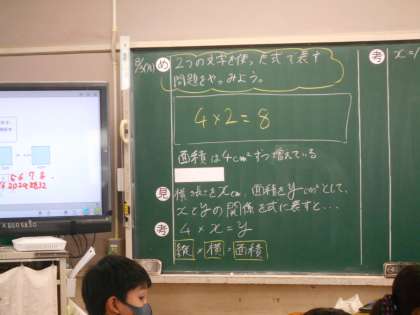 め 2つの文字を使った式で表す
問題をやってみよう。
4×2=8
面積は4cm²ずつ増えている
見 横の長さをxcm、面積をycm²として、
xとyの関係を式に表すと…
考 4×x=y
縦×横=面積
考 x=
5 6 7 8